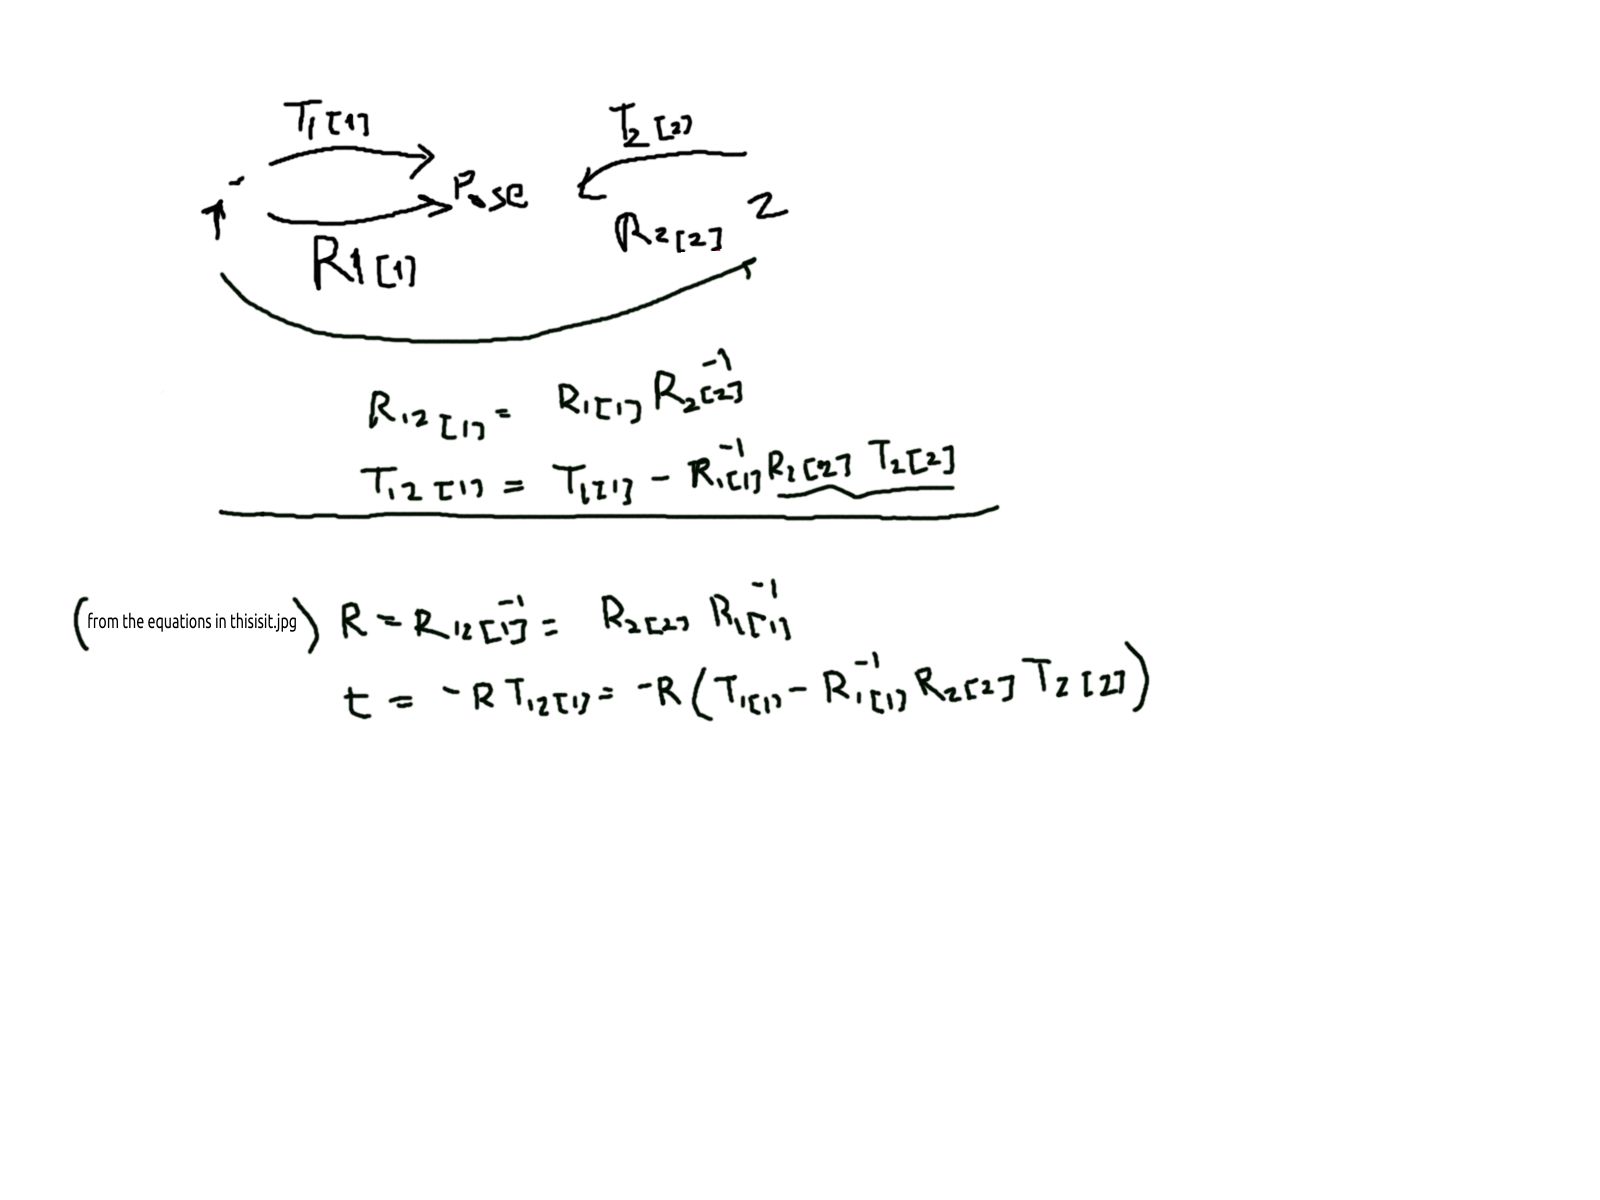 T1[1] T2[2]
1 Pose 2
R1[1] R2[2]
R12[1] = R1[1] R2[2]^-1
T12[1] = T1[1] - R1[1]^-1 R2[2] T2[2]
(from the equations in thisisit.jpg) R = R12[1]^-1 = R2[2] R1[1]^-1
t = -R T12[1] = -R (T1[1] - R1[1]^-1 R2[2] T2[2])